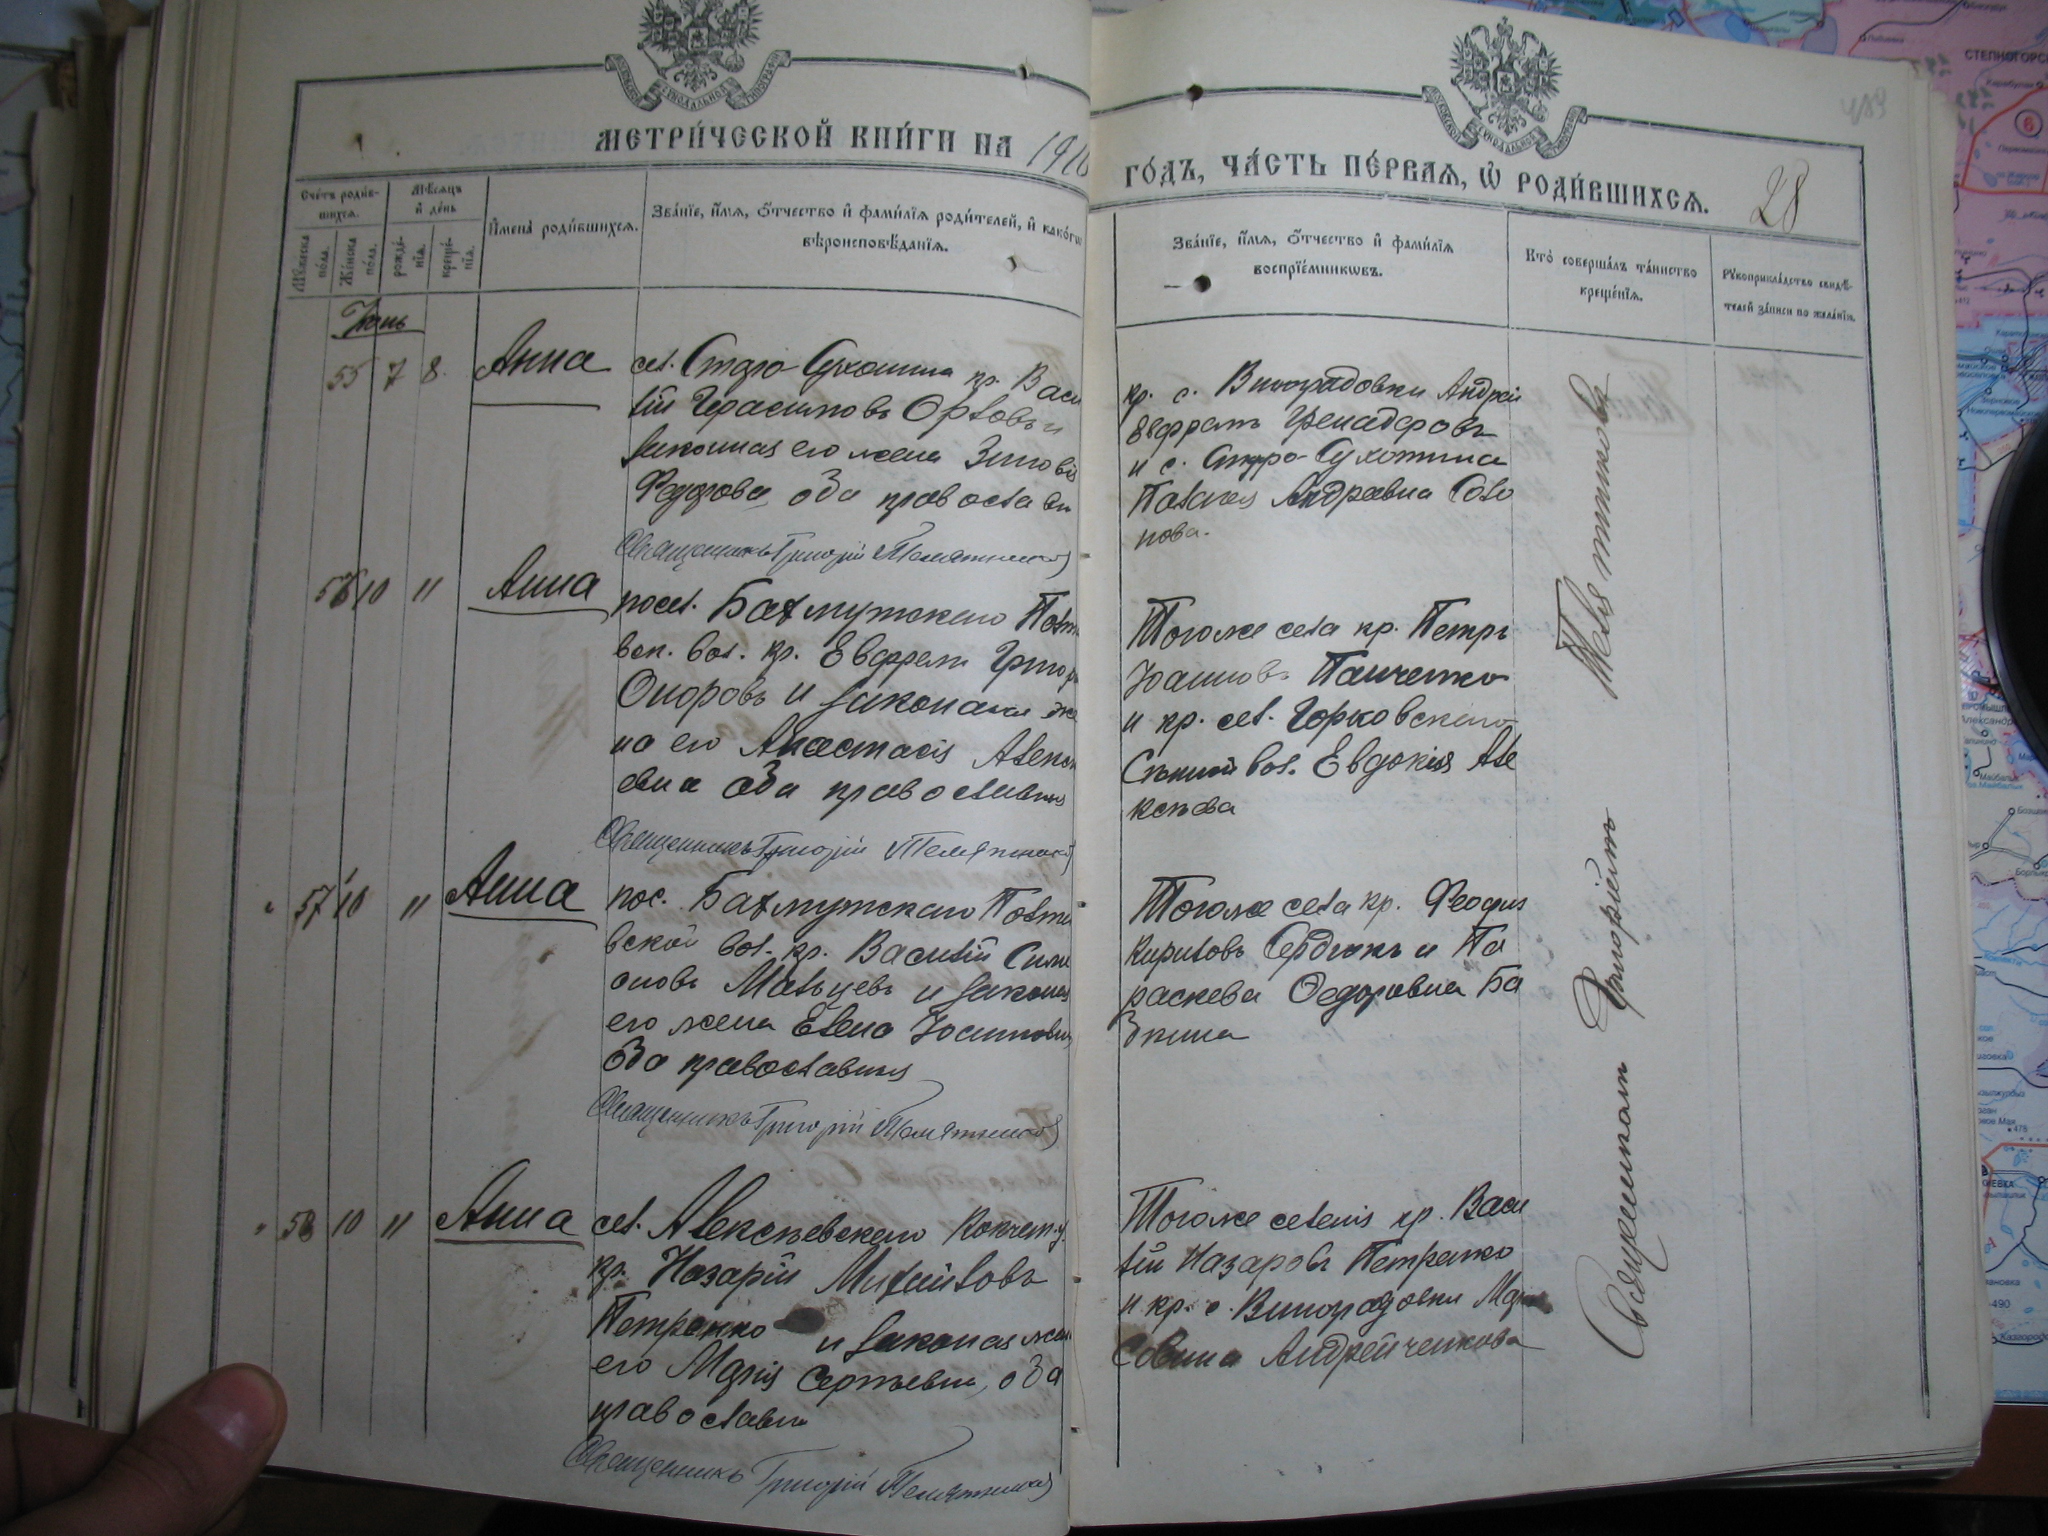 МЕТРИ́ЧЕСКОЙ КНИ́ГИ НА 1910
ГО́ДЪ, ЧА́СТЬ ПЕ́РВАЯ, Ѡ҆ РОДИ́ВШИХСЯ.
28
Сче́тъ роди́в-
шихся.
Мꙋ́жеска
по́ла.
Же́нска
по́ла.
Мѣ́сяцъ
и҆ де́нь
рожде́-
нїя.
креще́-
нїя.
И҆мена̀ роди́вшихся.
Зва́нїе, и҆́мя, ѻ҆́тчество и҆ фами́лїя роди́телей, и҆ како́гѡ
вѣроисповѣ́данїя.
Зва́нїе, и҆́мя, ѻ҆́тчество и҆ фами́лїя
воспрїе́мникѡвъ.
Кто̀ соверша́лъ та́инство
креще́нїя.
Рꙋкоприкла́дство свидѣ́-
телей за́писи по жела́нїю.
Іюнь
55 7 8. Анна
сел. Старо Сухотина кр. Васи
лій Герасимовъ Орловъ и
законная его жена Зиновія
Федорова, оба православн
Священникъ Григорій
кр. с. Виноградовки Андрей
Евфремъ Гренадеровъ
и с. Старо-Сухотина
Пелагея Андреевна Соло
пова.
56 10 11 Анна
посел. Бахмутскаго Полта
вск. вол. кр. Евфремъ Григор
Оноровъ и законная же
на его Анастасія Алексѣ
евна оба православны
Священникъ Григорій
Тогоже села кр. Петръ
Іоанновъ Панченко
и кр. сел. Горьковскаго
вол. Евдокія Але
ксѣева
57 10 11 Анна
пос. Бахмутскаго Полта
вской вол. кр. Василій Симе
оновъ Мальцевъ и законная
его жена Елена Іоанновна
оба православныя
Священникъ Григорій
Тогоже села кр. Феодоръ
Кириловъ Сердюкъ и Па
раскева Федоровна Ба
бкина
58 10 11 Анна
сел. Алексѣевскаго Кокчет. у.
кр. Назарій Михайловъ
Петренко и законная жена
его Марія Сергѣевна, оба
православн
Священникъ Григорій
Тогоже селенія кр. Васи
лій Назаровъ Петренко
и кр. с. Виноградовки Марія
Савина Андрейченкова
Священникомъ Григоріемъ